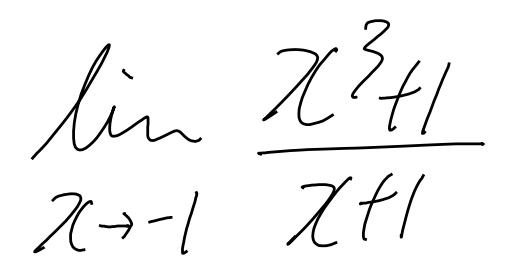 lim x→-1 (x³+1)/(x+1)